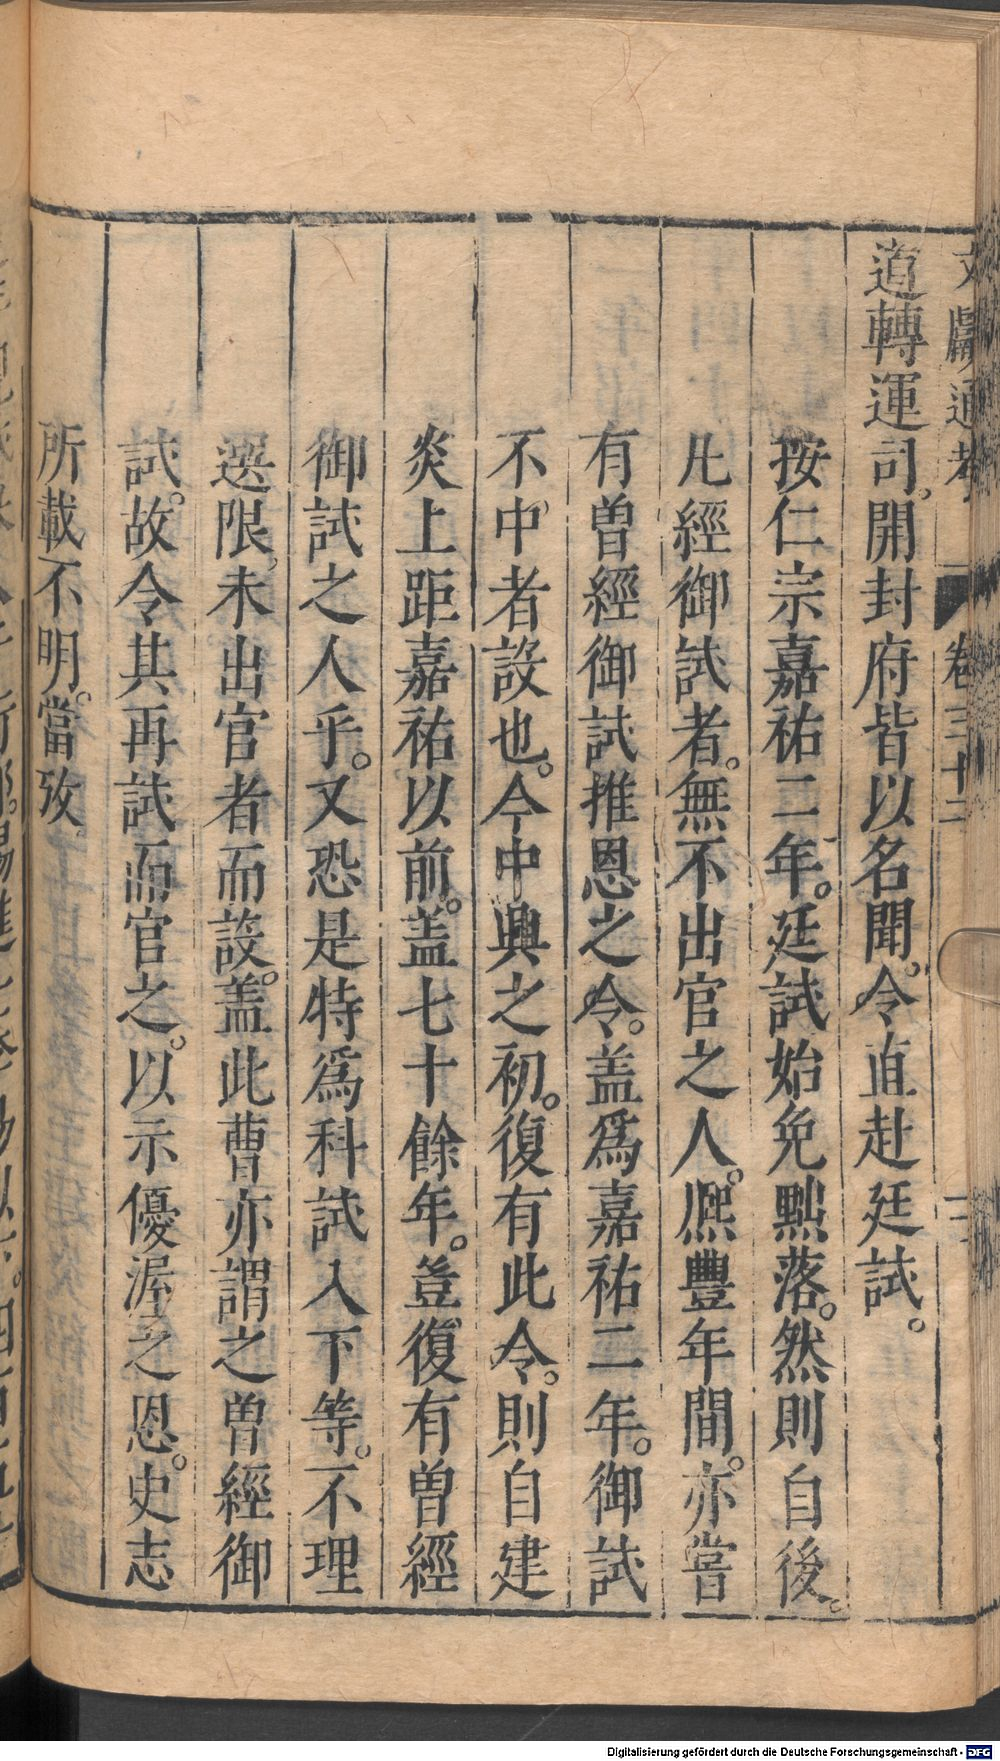 文獻通考 卷三十二 二
道轉運司。開封府皆以名聞。令直赴廷試。
按仁宗嘉祐二年。廷試始免黜落。然則自後。
凡經御試者。無不出官之人。熈豐年間。亦嘗
有曾經御試推恩之令。盖爲嘉祐二年。御試
不中者設也。今中興之初。復有此令。則自建
炎上距嘉祐以前。盖七十餘年。豈復有曾經
御試之人乎。又恐是特爲科試入下等。不理
選限。未出官者而設。盖此曹亦謂之曾經御
試。故令其再試而官之。以示優渥之恩。史志
所載不明。當攷
Digitalisierung gefördert durch die Deutsche Forschungsgemeinschaft - DFG